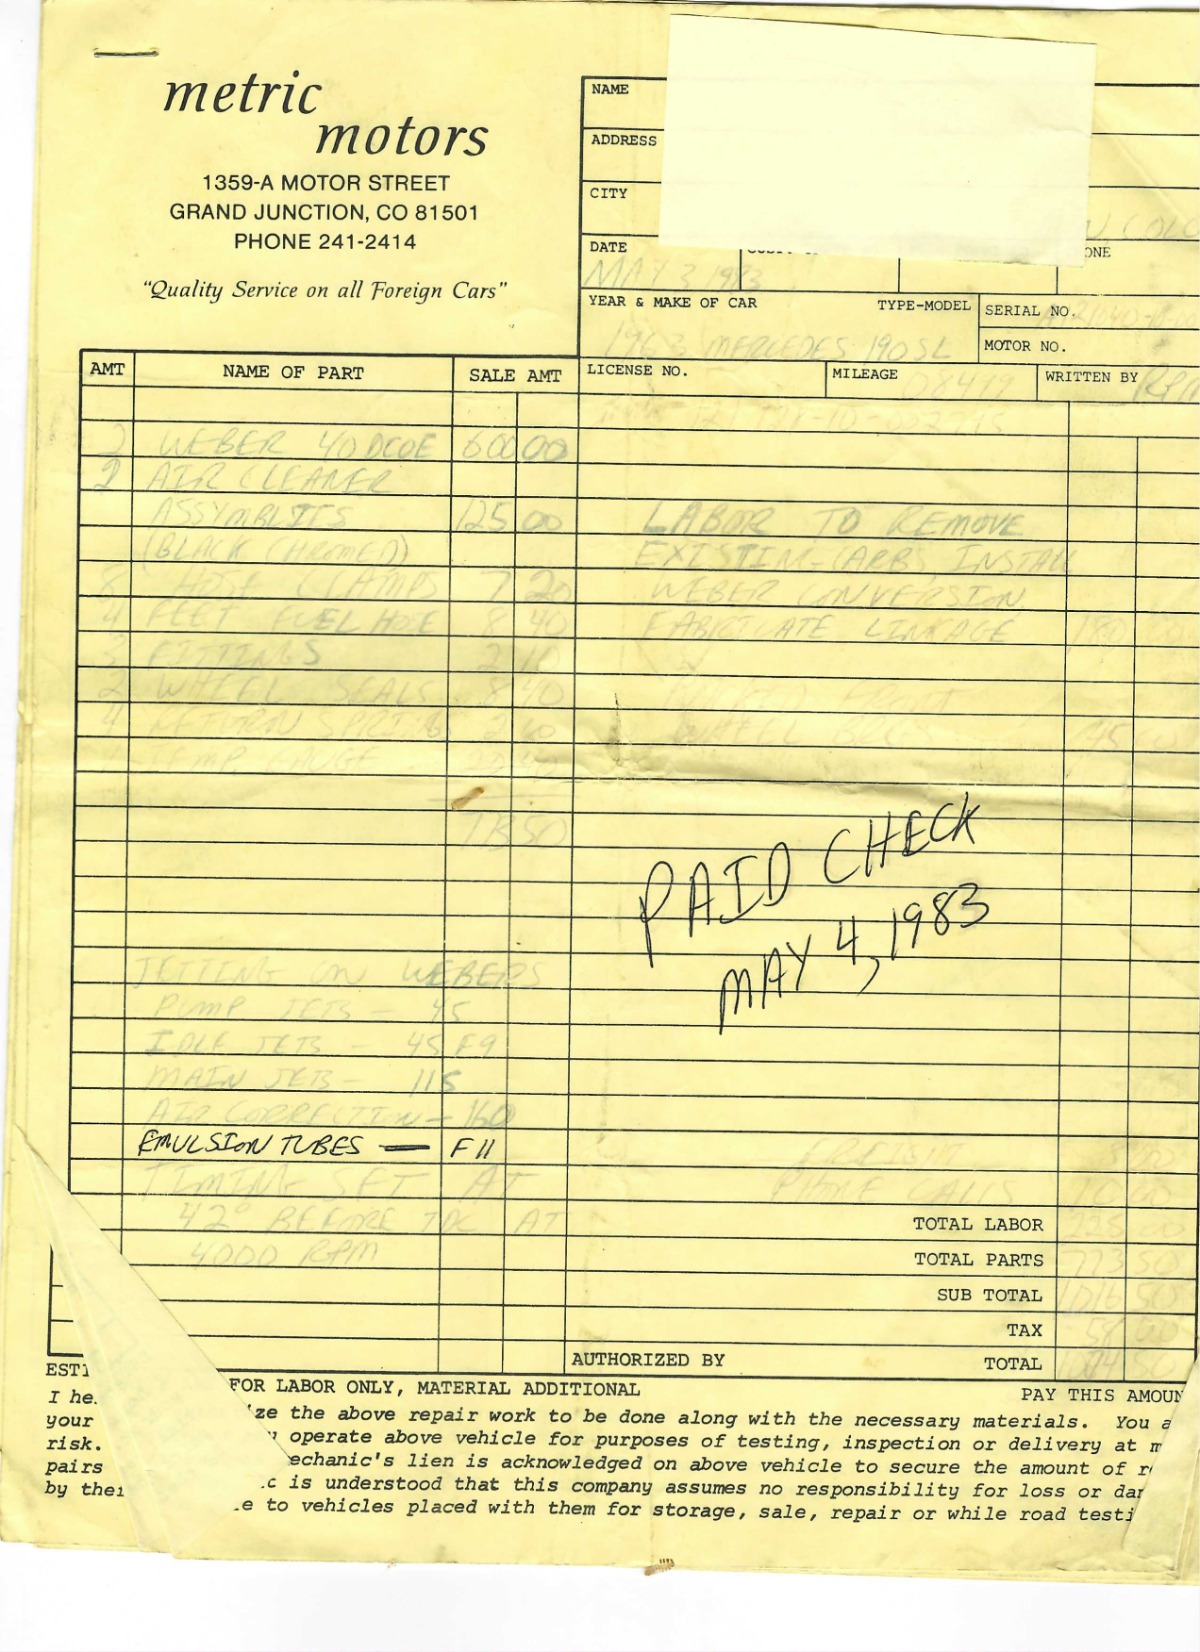 metric
motors
1359-A MOTOR STREET
GRAND JUNCTION, CO 81501
PHONE 241-2414
"Quality Service on all Foreign Cars"
NAME
ADDRESS
CITY
COLO
DATE
ONE
MAY 3 1983
YEAR & MAKE OF CAR TYPE-MODEL SERIAL NO.
1963 MERCEDES 190SL MOTOR NO.
LICENSE NO. MILEAGE WRITTEN BY
AMT NAME OF PART SALE AMT
2 WEBER 40 DCOE 600 00
2 AIR CLEANER
ASSYMBLITS 125 00 LABOR TO REMOVE
(BLACK CHROMED) EXISTING CARBS, INSTALL
8 HOSE CLAMPS 7 20 WEBER CONVERSION
4 FEET FUEL HOSE 8 40 FABRICATE LINKAGE 180 00
3 FITTINGS 2 10
2 WHEEL SEALS 8 40
4 RETURN SPRINGS 2 60 WHEEL 45 00
TEMP GAUGE
PAID CHECK
MAY 4, 1983
JETTING ON WEBERS
PUMP JETS - 45
IDLE JETS - 45 F9
MAIN JETS - 115
AIR CORRECTION - 160
EMULSION TUBES — F11
FREIGHT
TIMING SET AT PHONE CALLS 10 00
42° BEFORE TDC AT TOTAL LABOR 225 00
4000 RPM TOTAL PARTS 773 50
SUB TOTAL 1016 50
TAX
AUTHORIZED BY TOTAL
FOR LABOR ONLY, MATERIAL ADDITIONAL PAY THIS AMOUN
I he ze the above repair work to be done along with the necessary materials. You a
your operate above vehicle for purposes of testing, inspection or delivery at
risk. echanic's lien is acknowledged on above vehicle to secure the amount of
pairs is understood that this company assumes no responsibility for loss or dar
by thei e to vehicles placed with them for storage, sale, repair or while road testi